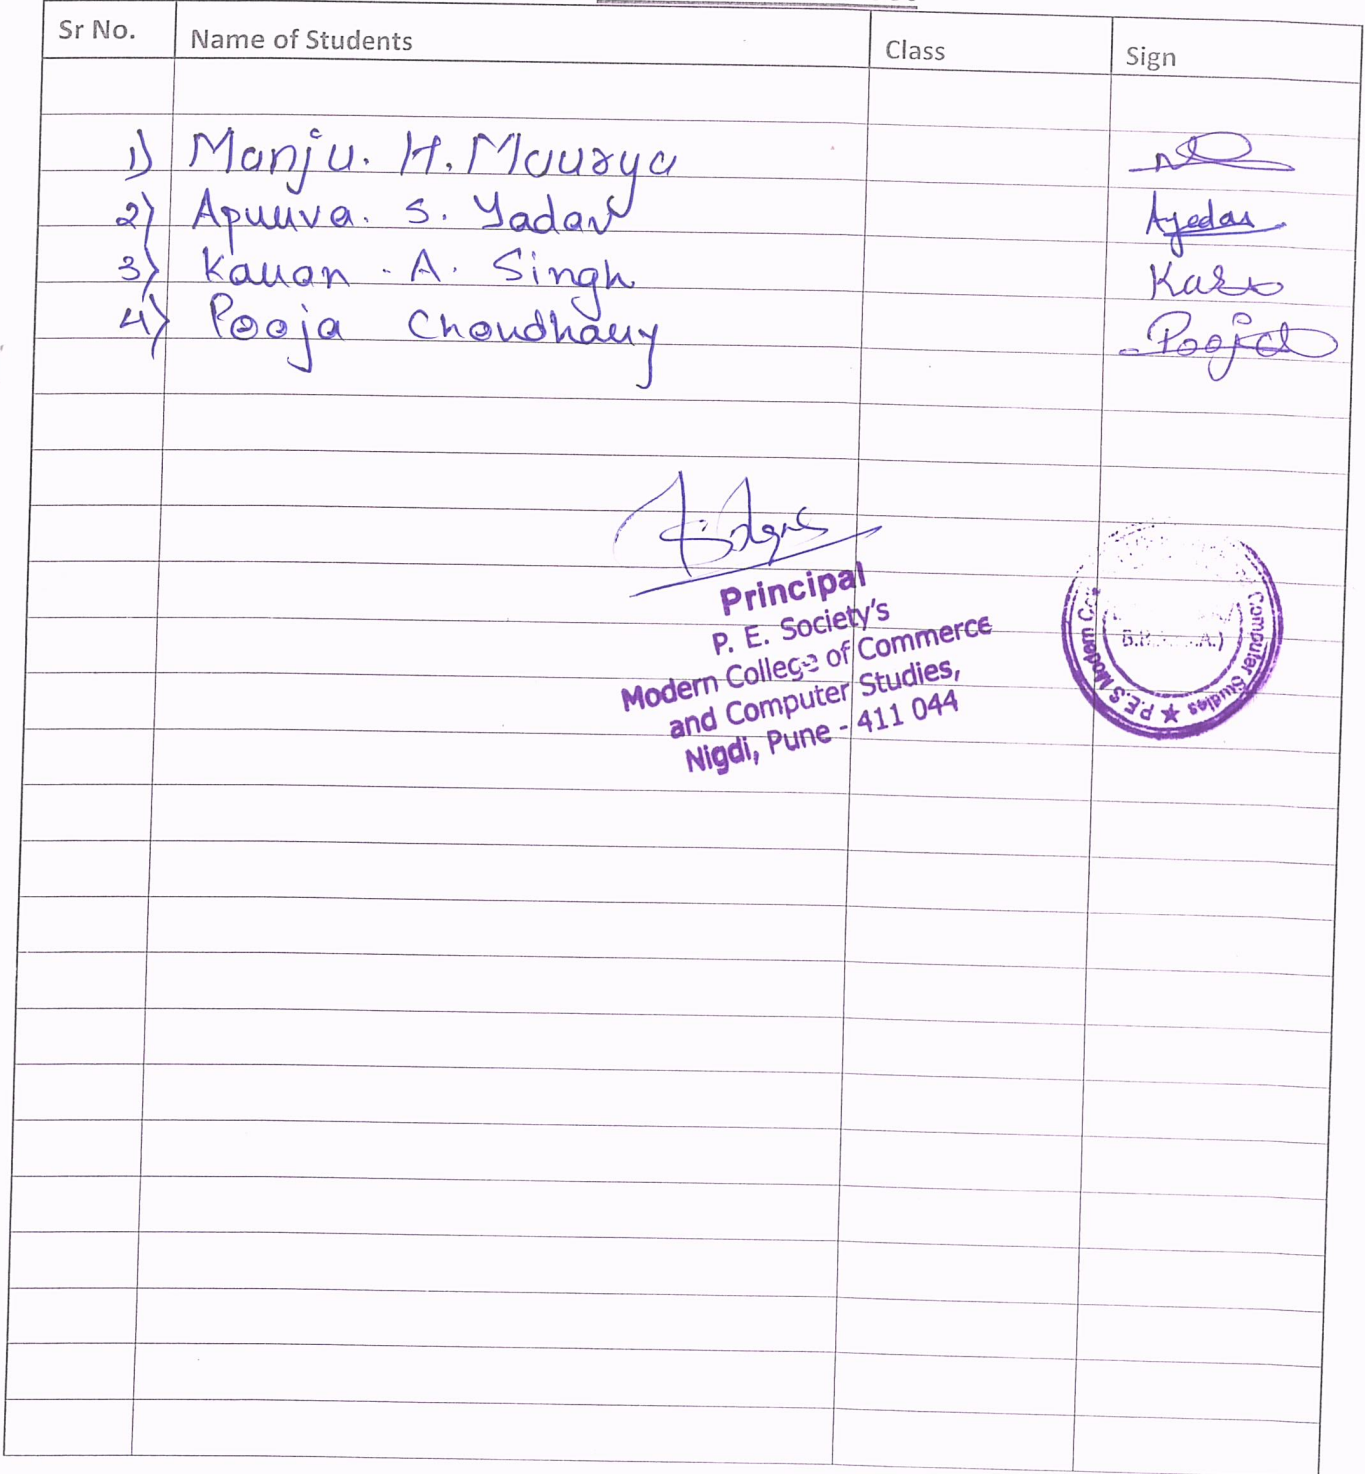 Sr No. Name of Students Class Sign
1) Manju. H. Maurya
2) Apurva. S. Yadav Ayadav
3) Karan. A. Singh
4) Pooja Choudhary Pooja
Principal
P. E. Society's
Modern College of Commerce
and Computer Studies,
Nigdi, Pune - 411 044
P.E.S Modern Computer Studies